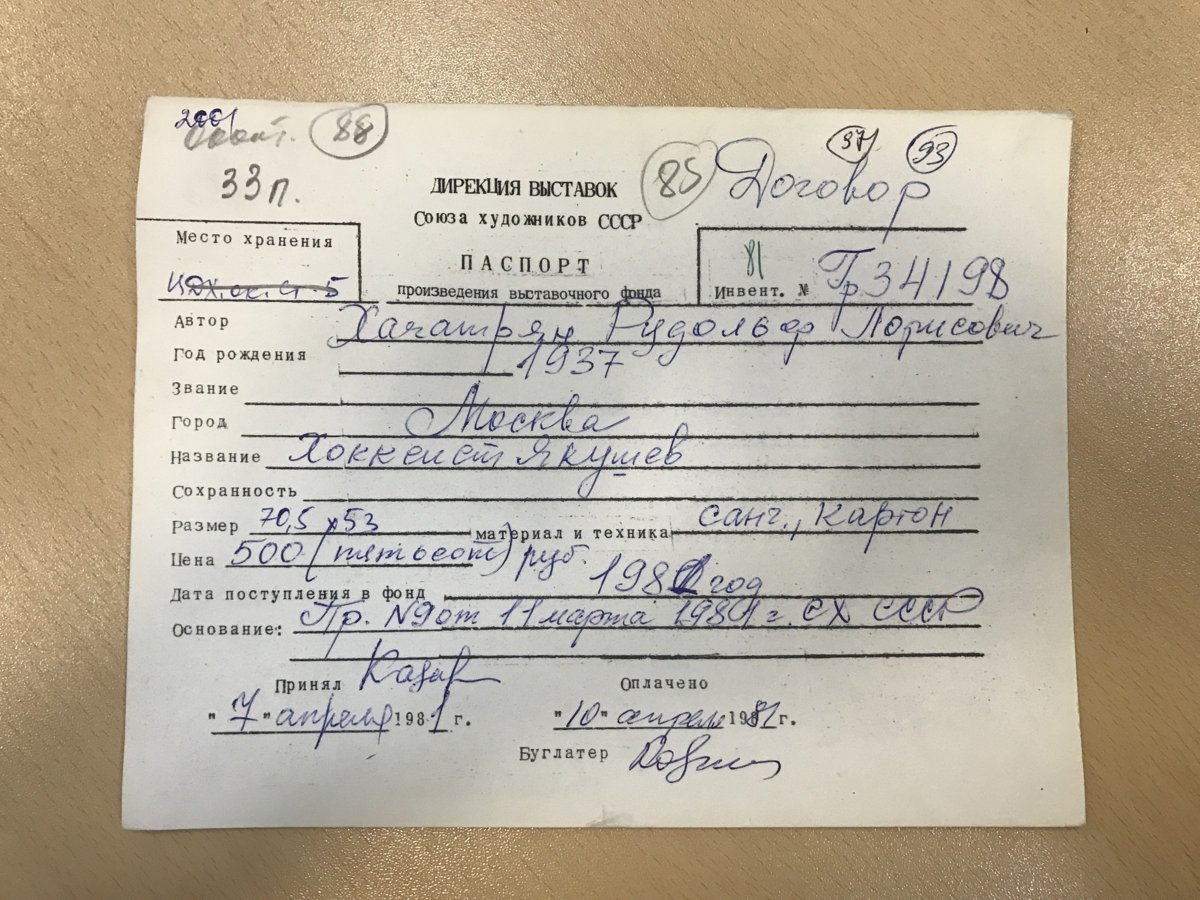 2001 88 37 93
33п. ДИРЕКЦИЯ ВЫСТАВОК 85 Договор
Союза художников СССР
Место хранения ПАСПОРТ 81
ЦДХ.ск.ст 5 произведения выставочного фонда Инвент. № Гр34198
Автор Хачатрян Рудольф Лорисович
Год рождения 1937
Звание
Город Москва
Название Хоккеист Якушев
Сохранность
Размер 70,5 х 53 материал и техника санг., картон
Цена 500 (пятьсот) руб.
Дата поступления в фонд 1981 год
Основание: Пр. №9 от 11 марта 1981 г. СХ СССР
Принял Оплачено
"7" апреля 1981 г. "10" апреля 1981 г.
Буглатер